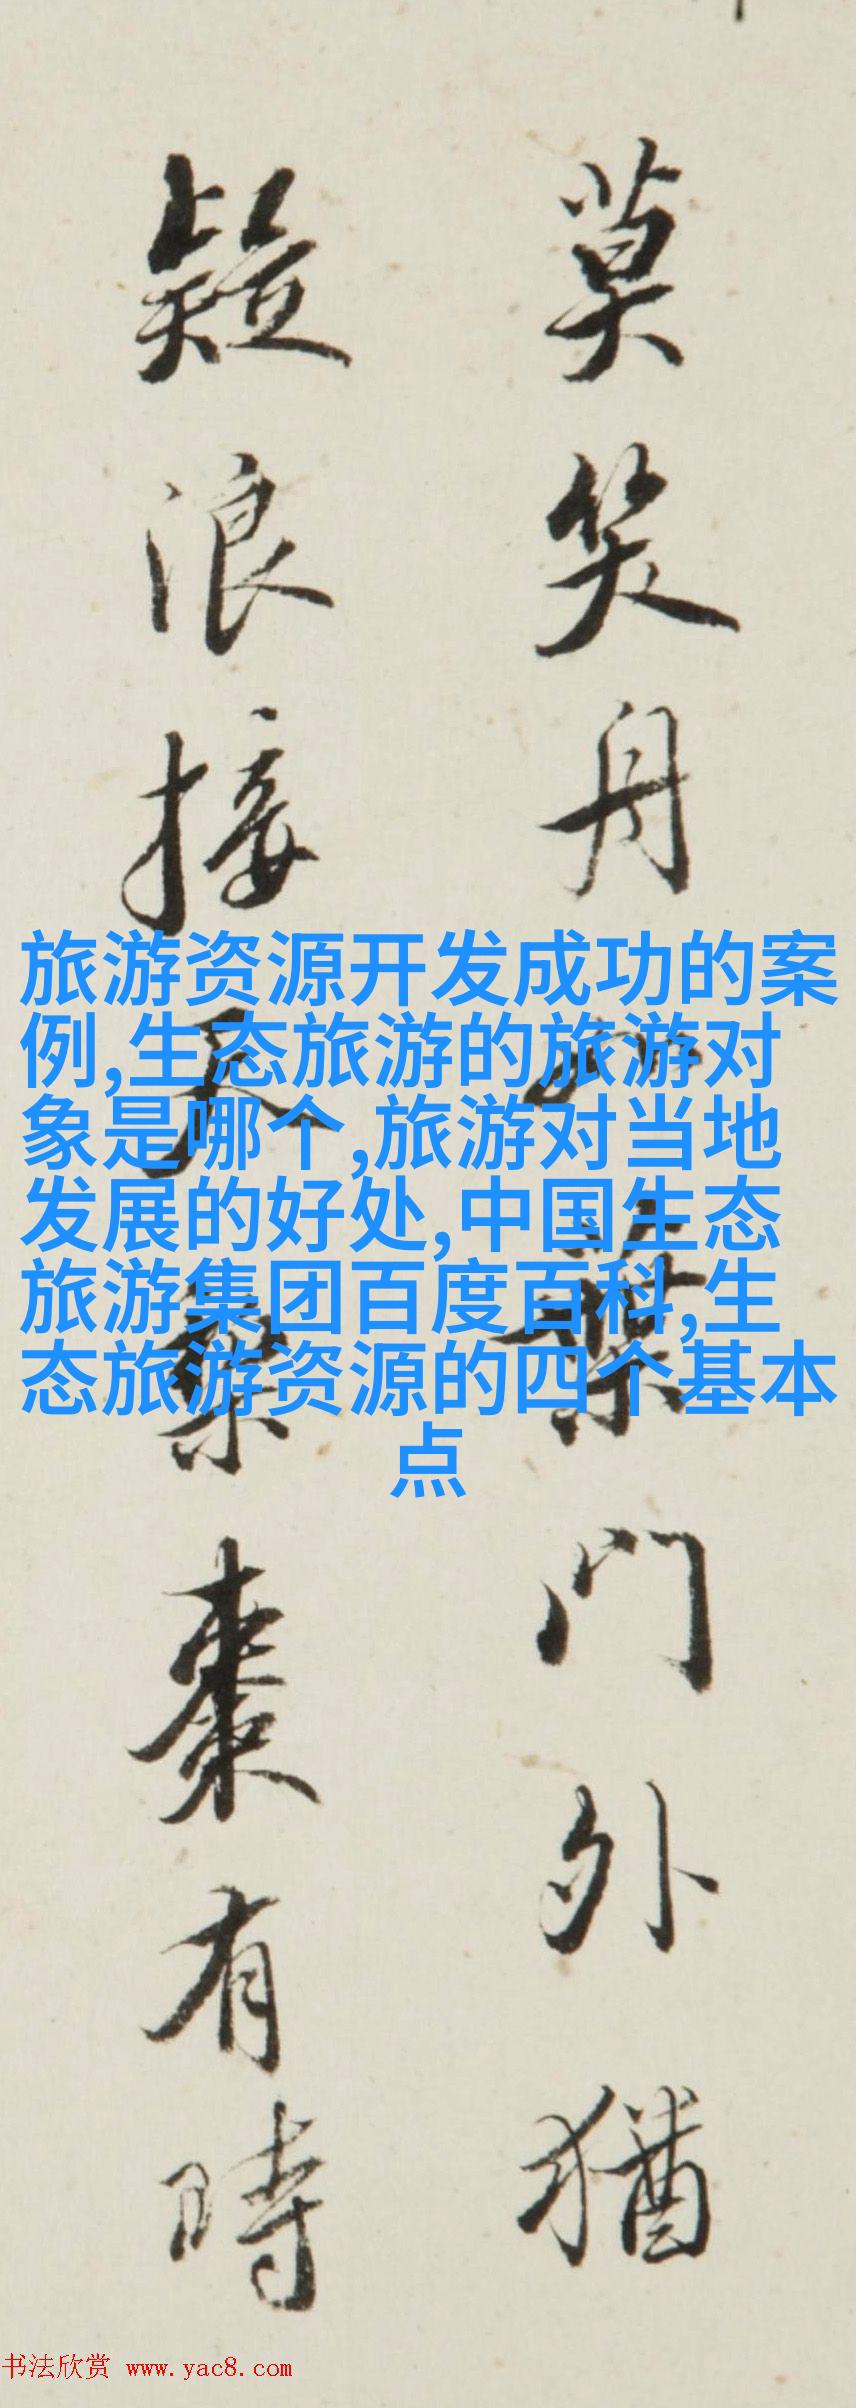 莫笑舟如葉門外猶
疑浪接天棗有時
旅游资源开发成功的案
例,生态旅游的旅游对
象是哪个,旅游对当地
发展的好处,中国生态
旅游集团百度百科,生
态旅游资源的四个基本
点
书法欣赏 www.yac8.com